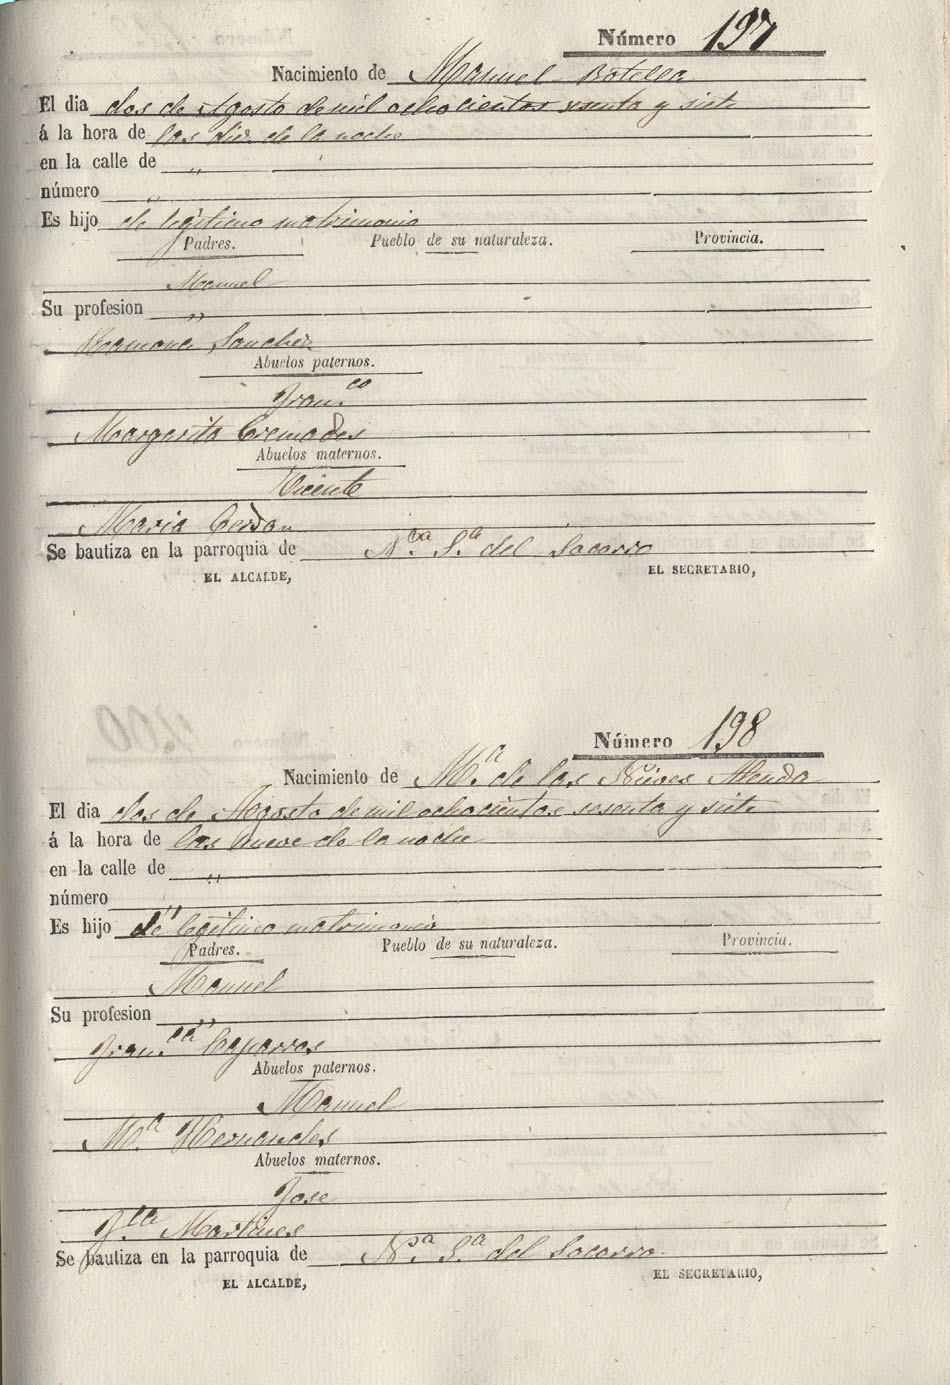 Número 197
Nacimiento de Manuel Botella
El dia dos de Agosto de mil ochocientos senta y siete
á la hora de las diez de la noche
en la calle de „
número „
Es hijo de legitimo matrimonio
Padres. Pueblo de su naturaleza. Provincia.
Manuel
Su profesion „
Ramona Sanchez
Abuelos paternos.
Fran.co
Margarita Cremades
Abuelos maternos.
Vicente
Maria Cerdan
Se bautiza en la parroquia de N.tra S.a del Socorro
EL ALCALDE, EL SECRETARIO,
Número 198
Nacimiento de M.a de las Nieves Alenda
El dia dos de Agosto de mil ochocientos sesenta y siete
á la hora de las nueve de la noche
en la calle de „
número „
Es hijo de legitimo matrimonio
Padres. Pueblo de su naturaleza. Provincia.
Manuel
Su profesion „
Fran.ca Caparros
Abuelos paternos.
Manuel
M.a Hernandes
Abuelos maternos.
Jose
F.ca Martines
Se bautiza en la parroquia de N.ra S.a del Socorro
EL ALCALDE, EL SECRETARIO,